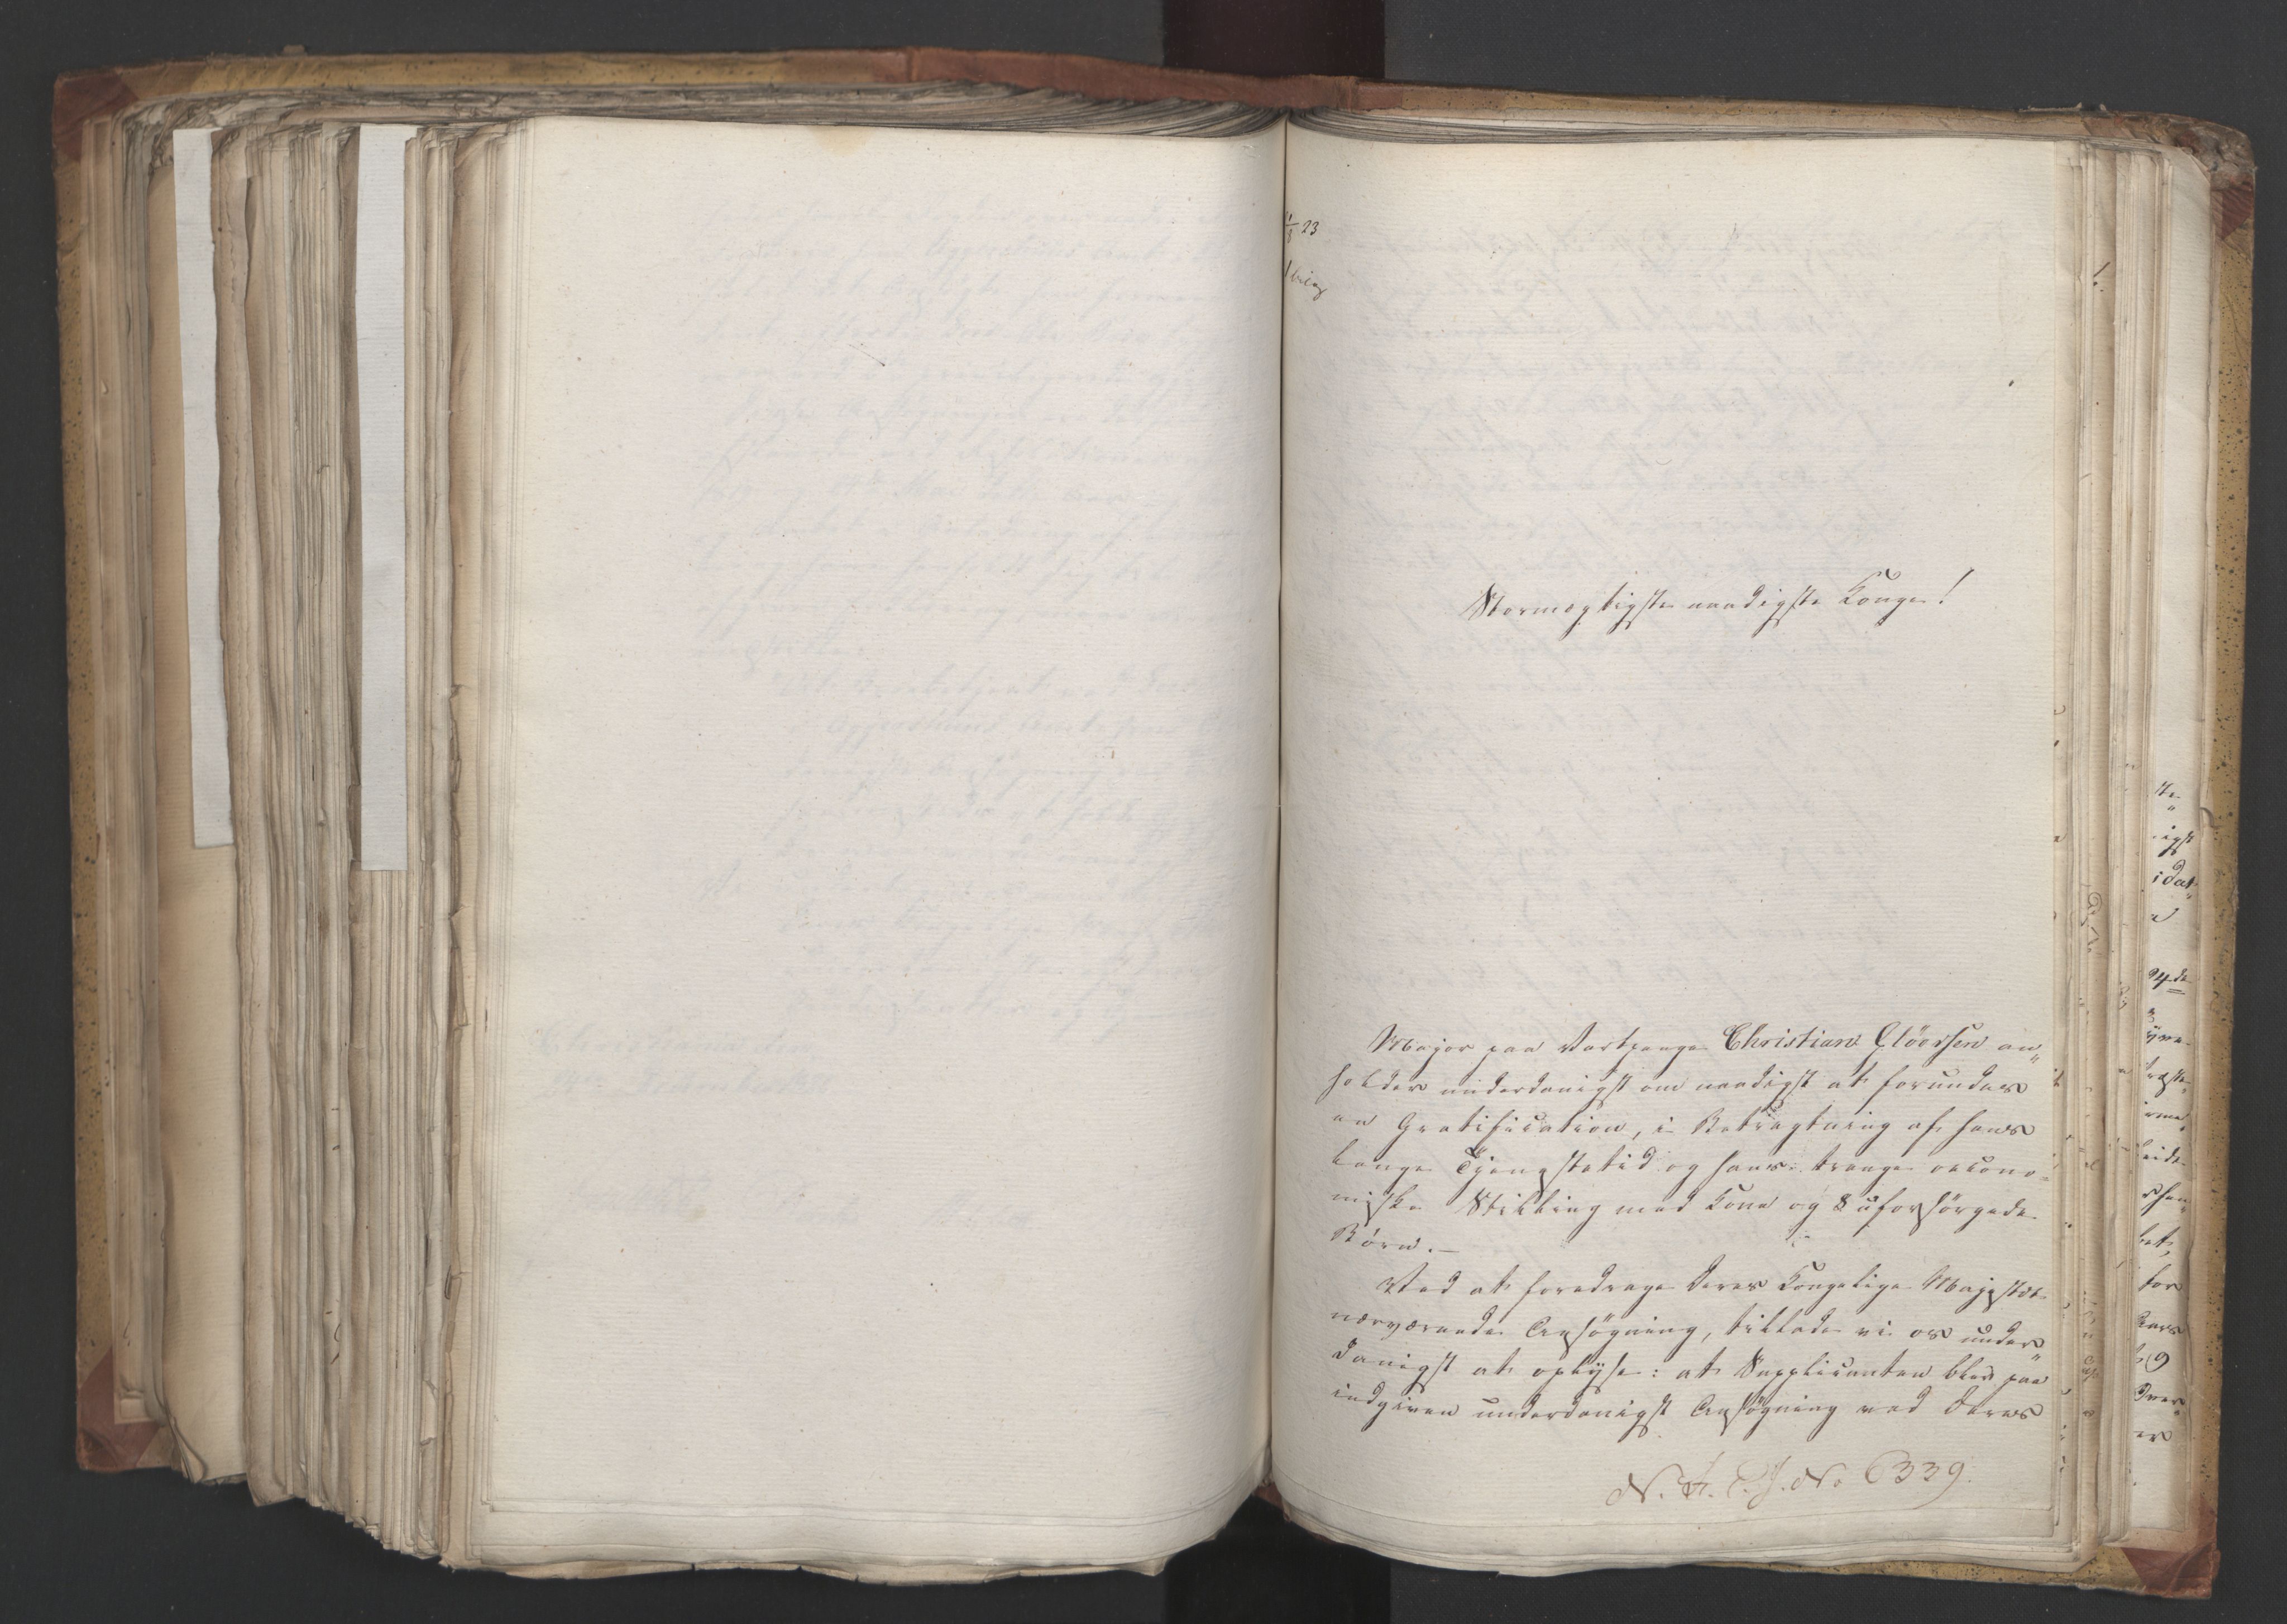 1/8 23
1 bilag
Stormægtigste naadigste Konge!
Major paa Vartpenge Christian Clöversen an„
holder underdanigst om naadigst at forundes
en Gratification, i Betragtning af hans
lange Tjenestetid og hans trange oecono-
miske Stilling med Kone og 8 uforsörgede
Börn.—
Ved at foredrage Deres Kongelige Majestæt
nærværende Ansögning, tillade vi os under„
danigst at oplÿse: at Supplicanten blev paa
indgiven underdanigst Ansögning ved Deres
N. F. C. J. No 6339.